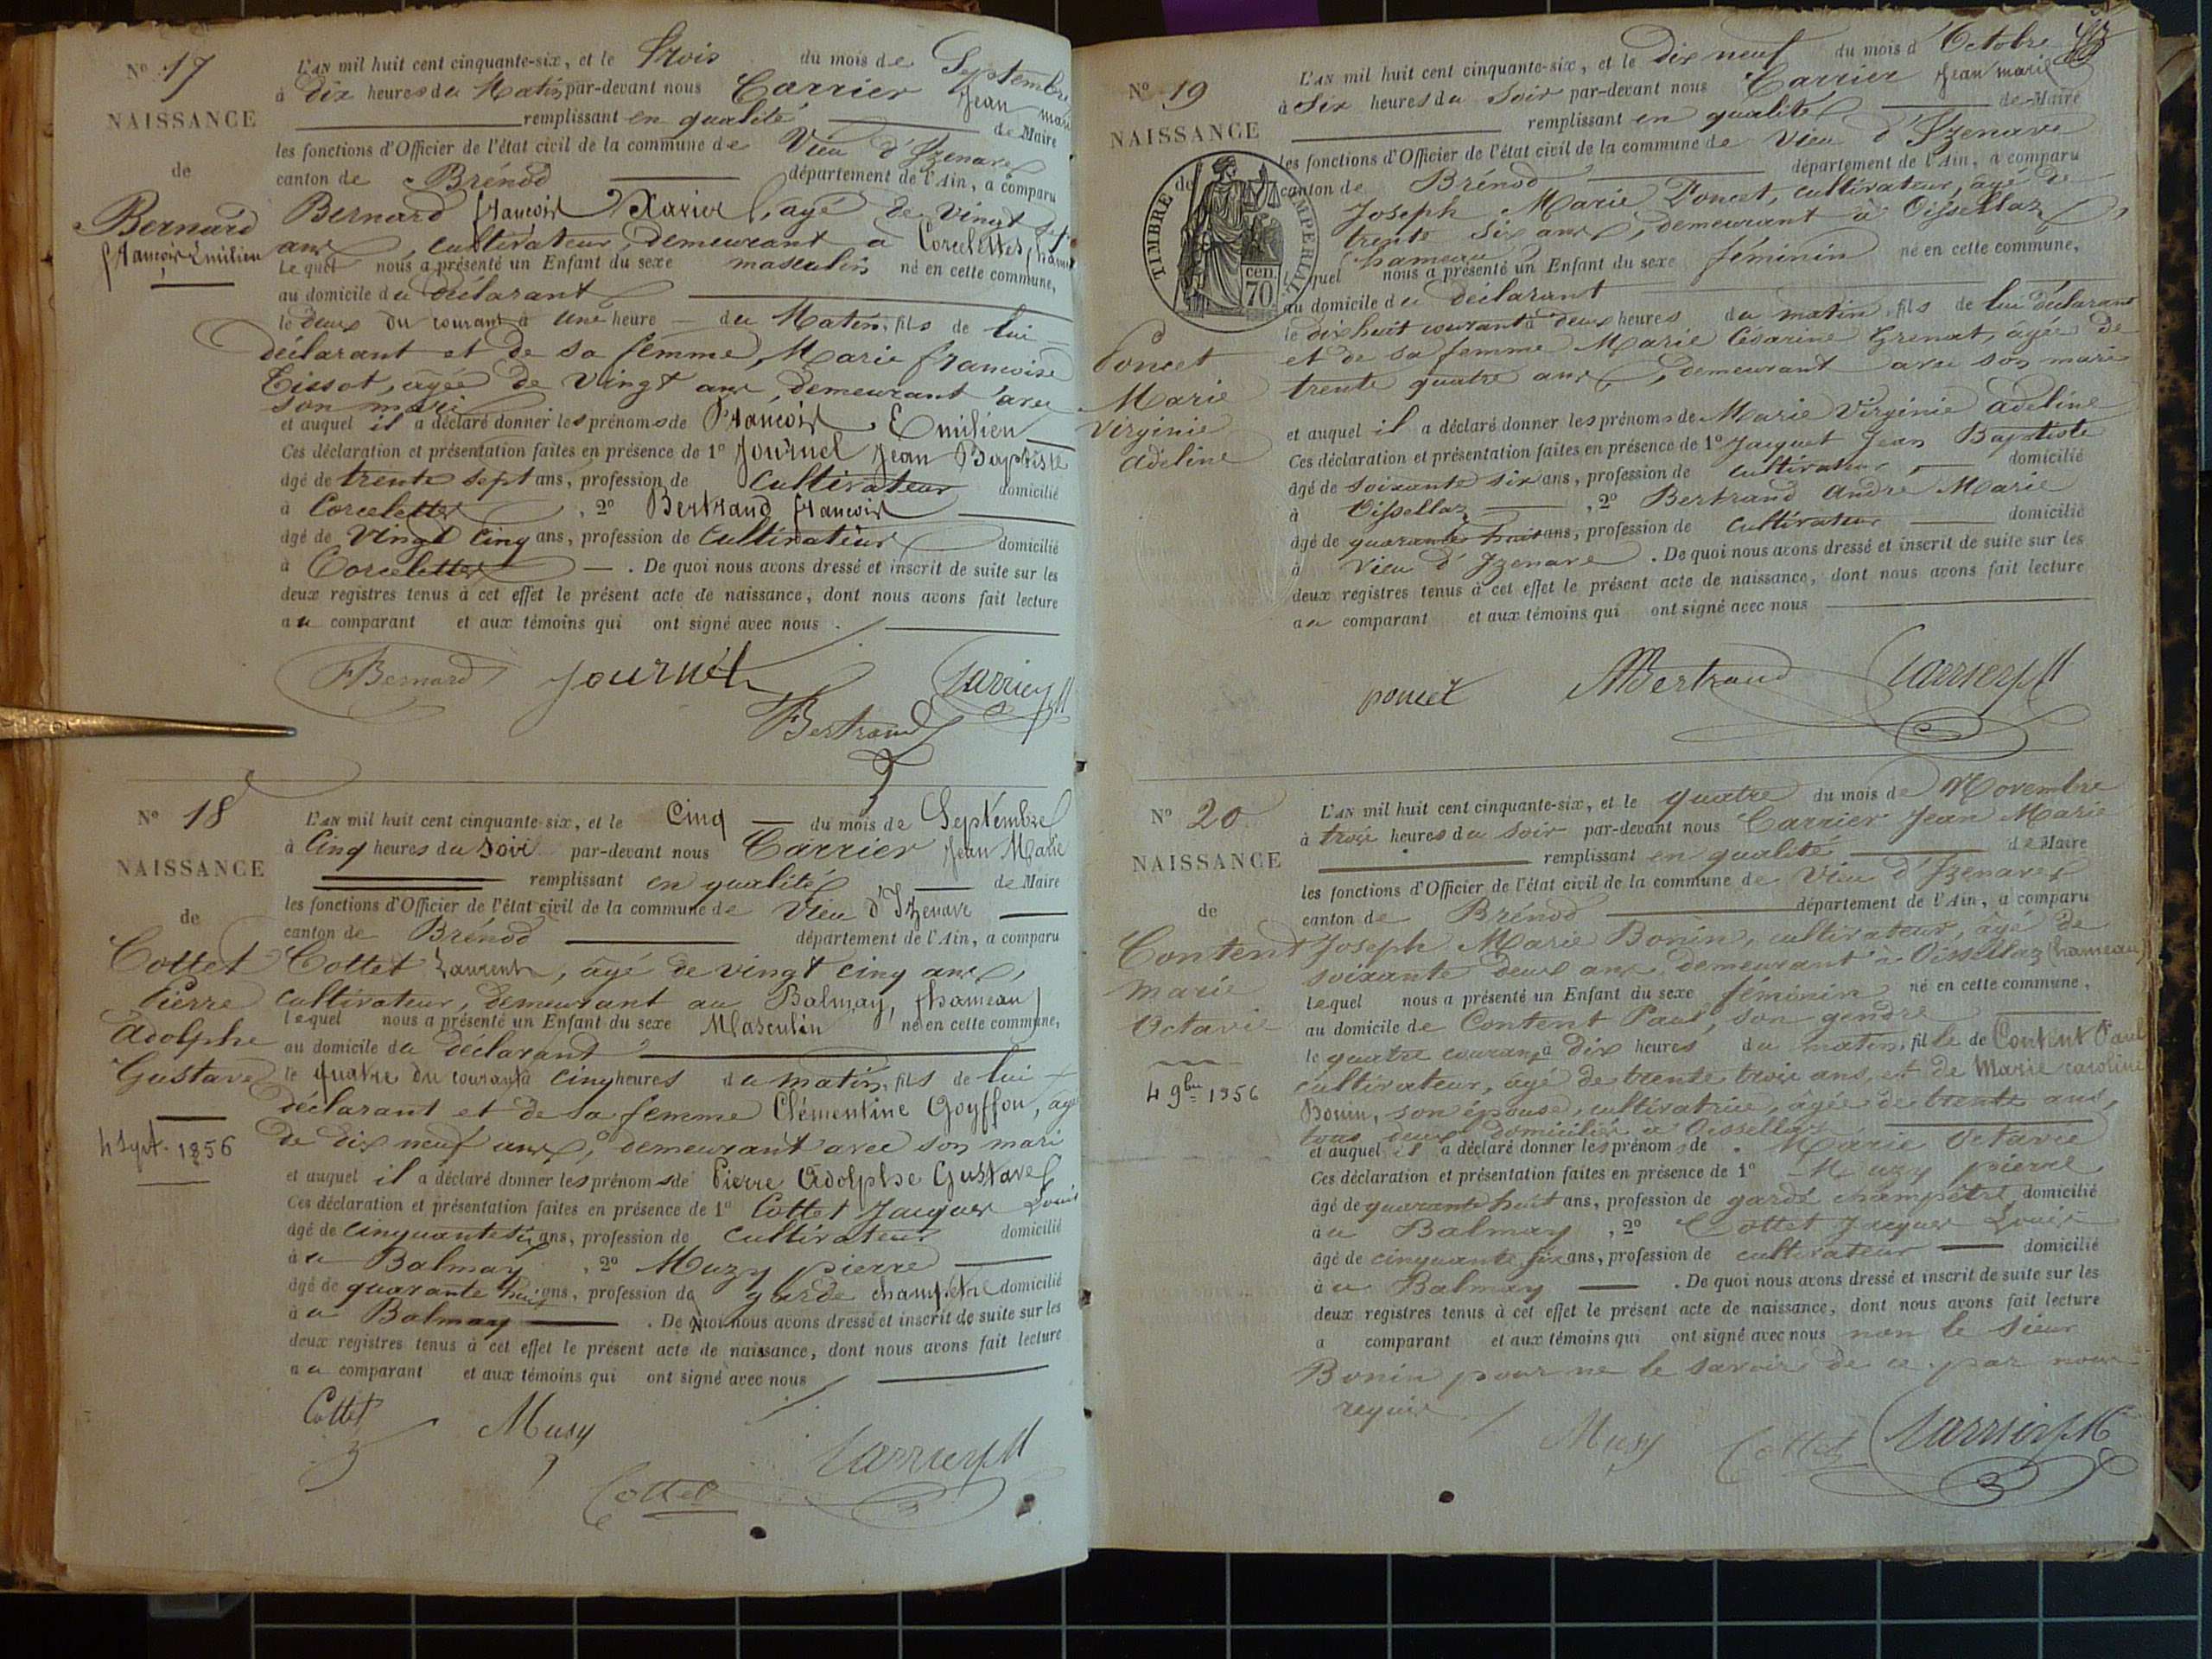 Nº 17
NAISSANCE
de
Bernard
françois Emilien
L'AN mil huit cent cinquante-six, et le trois du mois de Septembre
à dix heures du Matin par-devant nous Carrier Jean marie
remplissant en qualité de Maire
les fonctions d'Officier de l'état civil de la commune de Vieu d'Izenave
canton de Brénod département de l'Ain, a comparu
Bernard françois Xavier, agé de vingt sept
ans, cultivateur, demeurant à Corcelettes, hameau
Lequel nous a présenté un Enfant du sexe masculin né en cette commune,
au domicile du déclarant
le deux du courant à une heure du Matin, fils de lui
déclarant et de sa femme, Marie françoise
Tissot, âgée de vingt ans, demeurant avec
son mari
et auquel il a déclaré donner les prénoms de François Emilien
Ces déclaration et présentation faites en présence de 1º Journel Jean Baptiste
âgé de trente sept ans, profession de Cultivateur domicilié
à Corcelettes, 2º Bertrand françois
âgé de Vingt cinq ans, profession de Cultivateur domicilié
à Corcelettes. De quoi nous avons dressé et inscrit de suite sur les
deux registres tenus à cet effet le présent acte de naissance, dont nous avons fait lecture
au comparant et aux témoins qui ont signé avec nous.
FBernard Journel Carrier JM
FBertrand
Nº 18
NAISSANCE
de
Cottet
Pierre
Adolphe
Gustave
4 Sept. 1856
L'AN mil huit cent cinquante-six, et le Cinq du mois de Septembre
à Cinq heures du Soir par-devant nous Carrier Jean Marie
remplissant en qualité de Maire
les fonctions d'Officier de l'état civil de la commune de Vieu d'Izenave
canton de Brénod département de l'Ain, a comparu
Cottet Laurent, âgé de vingt cinq ans,
cultivateur, demeurant au Balmay, (hameau)
lequel nous a présenté un Enfant du sexe Masculin né en cette commune,
au domicile du déclarant
le quatre du courant à cinq heures du matin, fils de lui
déclarant et de sa femme Clémentine Goyffon, agée
de dix neuf ans, demeurant avec son mari
et auquel il a déclaré donner les prénoms de Pierre Adolphe Gustave
Ces déclaration et présentation faites en présence de 1º Cottet Jacques Louis
âgé de cinquante six ans, profession de Cultivateur domicilié
au Balmay, 2º Muzy pierre
âgé de quarante huit ans, profession de garde champêtre domicilié
au Balmay. De quoi nous avons dressé et inscrit de suite sur les
deux registres tenus à cet effet le présent acte de naissance, dont nous avons fait lecture
au comparant et aux témoins qui ont signé avec nous
Cottet Musy Carrier JM
Cottet
Nº 19
NAISSANCE
de
TIMBRE IMPERIAL
70 cen.
Poncet
Marie
Virginie
Adeline
L'AN mil huit cent cinquante-six, et le Dix neuf du mois d'Octobre
à Six heures du Soir par-devant nous Carrier Jean marie
remplissant en qualité de Maire
les fonctions d'Officier de l'état civil de la commune de Vieu d'Izenave
canton de Brénod département de l'Ain, a comparu
Joseph Marie Poncet, cultivateur, agé de
trente six ans, demeurant à Oissellaz,
hameau
lequel nous a présenté un Enfant du sexe féminin né en cette commune,
au domicile du déclarant
le dix huit courant à deux heures du matin, fils de lui déclarant
et de sa femme Marie Césarine Grenat, agée de
trente quatre ans, demeurant avec son mari
et auquel il a déclaré donner les prénoms de Marie Virginie adeline
Ces déclaration et présentation faites en présence de 1º Jacquet Jean Baptiste
âgé de soixante six ans, profession de cultivateur domicilié
à Oissellaz, 2º Bertrand André Marie
âgé de quarante huit ans, profession de cultivateur domicilié
à Vieu d'Izenave. De quoi nous avons dressé et inscrit de suite sur les
deux registres tenus à cet effet le présent acte de naissance, dont nous avons fait lecture
au comparant et aux témoins qui ont signé avec nous
poncet AMBertrand Carrier JM
Nº 20
NAISSANCE
de
Content
Marie
Octavie
4 9bre 1856
L'AN mil huit cent cinquante-six, et le quatre du mois de Novembre
à trois heures du soir par-devant nous Carrier Jean Marie
remplissant en qualité de Maire
les fonctions d'Officier de l'état civil de la commune de Vieu d'Izenave
canton de Brénod département de l'Ain, a comparu
Joseph Marie Bonin, cultivateur, âgé de
soixante deux ans, demeurant à Oissellaz (hameau)
Lequel nous a présenté un Enfant du sexe féminin né en cette commune,
au domicile de Content Paul, son gendre
le quatre courant à dix heures du matin, fille de Content Paul
cultivateur, âgé de trente trois ans, et de Marie caroline
Bonin, son épouse, cultivatrice, âgée de trente ans,
tous deux domiciliés à Oissellaz
et auquel il a déclaré donner les prénoms de Marie Octavie
Ces déclaration et présentation faites en présence de 1º Muzy pierre
âgé de quarante huit ans, profession de garde champêtre, domicilié
au Balmay, 2º Cottet Jacques Louis
âgé de cinquante six ans, profession de cultivateur domicilié
au Balmay. De quoi nous avons dressé et inscrit de suite sur les
deux registres tenus à cet effet le présent acte de naissance, dont nous avons fait lecture
a comparant et aux témoins qui ont signé avec nous non le sieur
Bonin pour ne le savoir de ce par nous
requis
Musy Cottet Carrier JM